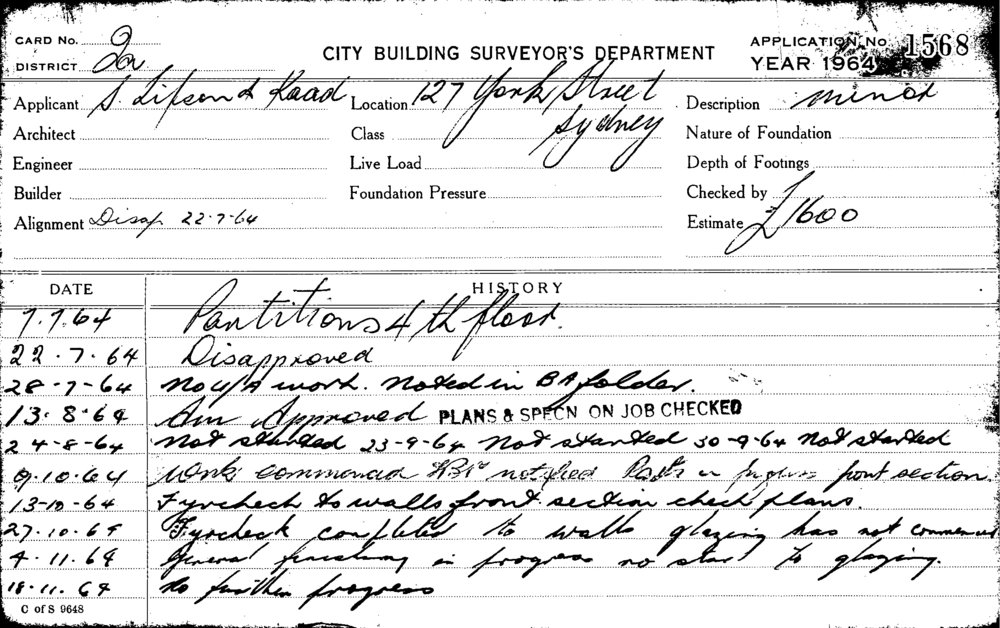 CARD No. 2a
DISTRICT
CITY BUILDING SURVEYOR'S DEPARTMENT
APPLICATION No 1568
YEAR 1964
Applicant S. Lipson & Kaad
Location 127 York Street
Sydney
Description minor
Architect
Class
Nature of Foundation
Engineer
Live Load
Depth of Footings
Builder
Foundation Pressure
Checked by
Alignment Disap. 22-7-64
Estimate £1600
DATE HISTORY
7.7.64 Partitions 4th floor.
22.7.64 Disapproved
28-7-64 No u/a work. Noted in BA folder.
13.8.64 Am Approved PLANS & SPECN ON JOB CHECKED
24-8-64 Not started 23-9-64 Not started 30-9-64 Not started
9.10.64 Work commenced notified in front section.
13-10-64 Fyrcheck to walls front section check plans.
27.10.64 Fyrcheck completed to walls glazing has not commenced
4.11.64 General finishing in progress no start to glazing.
18.11.64 No further progress
C of S 9648